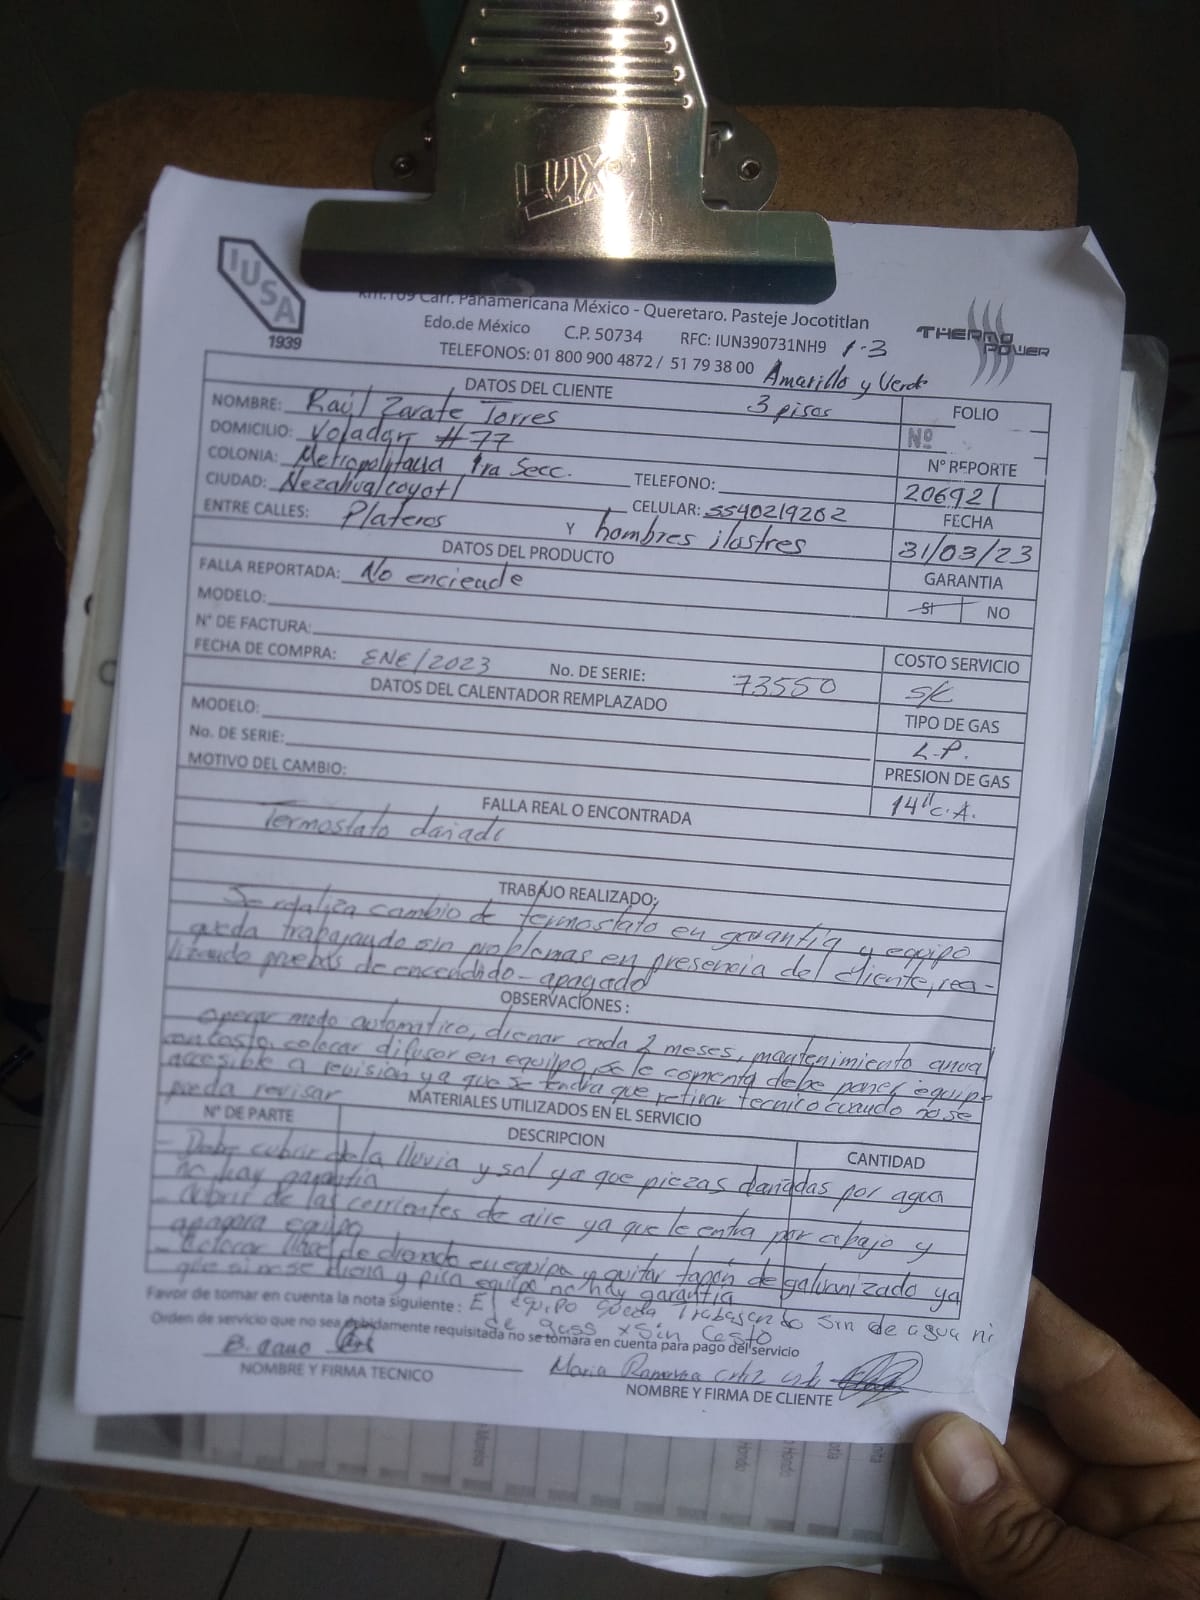 LUX
IUSA
1939
km.109 Carr. Panamericana México - Queretaro. Pasteje Jocotitlan
Edo.de México C.P. 50734 RFC: IUN390731NH9 1-3
TELEFONOS: 01 800 900 4872 / 51 79 38 00 Amarillo y Verde
THERMO POWER
DATOS DEL CLIENTE 3 pisos
FOLIO
Nº
NOMBRE: Raúl Zarate Torres
DOMICILIO: Volador #77
COLONIA: Metropolitana 1ra Secc.
CIUDAD: Nezahualcoyotl
TELEFONO:
CELULAR: 5540219202
ENTRE CALLES: Plateros Y hombres ilustres
N° REPORTE
206921
FECHA
31/03/23
GARANTIA
SI NO
DATOS DEL PRODUCTO
FALLA REPORTADA: No enciende
MODELO:
N° DE FACTURA:
FECHA DE COMPRA: ENE/2023 No. DE SERIE: 73550
COSTO SERVICIO
S/C
TIPO DE GAS
L.P.
PRESION DE GAS
14" C.A.
DATOS DEL CALENTADOR REMPLAZADO
MODELO:
No. DE SERIE:
MOTIVO DEL CAMBIO:
FALLA REAL O ENCONTRADA
Termostato dañado
TRABAJO REALIZADO:
Se realiza cambio de termostato en garantía y equipo
queda trabajando sin problemas en presencia del cliente, rea-
lizando pruebas de encendido - apagado
OBSERVACIONES:
operar modo automatico, drenar cada 2 meses, mantenimiento anual
con costo, colocar difusor en equipo, se le comenta debe poner equipo
accesible a revisión ya que se tendra que retirar tecnico cuando no se
pueda revisar
MATERIALES UTILIZADOS EN EL SERVICIO
N° DE PARTE DESCRIPCION CANTIDAD
- Debe cubrir de la lluvia y sol ya que piezas dañadas por agua
no hay garantía
- Cubrir de las corrientes de aire ya que le entra por abajo y
apagara equipo
- Colocar llave de drenado en equipo y quitar tapón de galvanizado ya
que si no se drena y pica equipo no hay garantía
Favor de tomar en cuenta la nota siguiente: El equipo queda trabajando sin de agua ni
de gass x sin Costo
Orden de servicio que no sea debidamente requisitada no se tomara en cuenta para pago del servicio
B. cano
NOMBRE Y FIRMA TECNICO
Maria
NOMBRE Y FIRMA DE CLIENTE